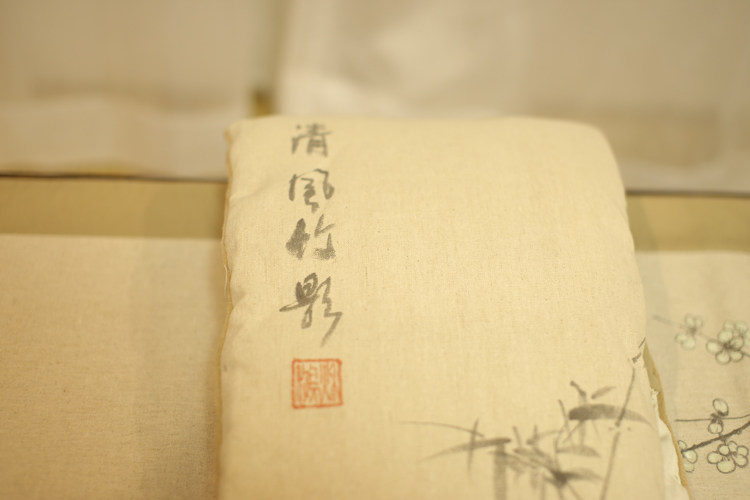 清風竹影